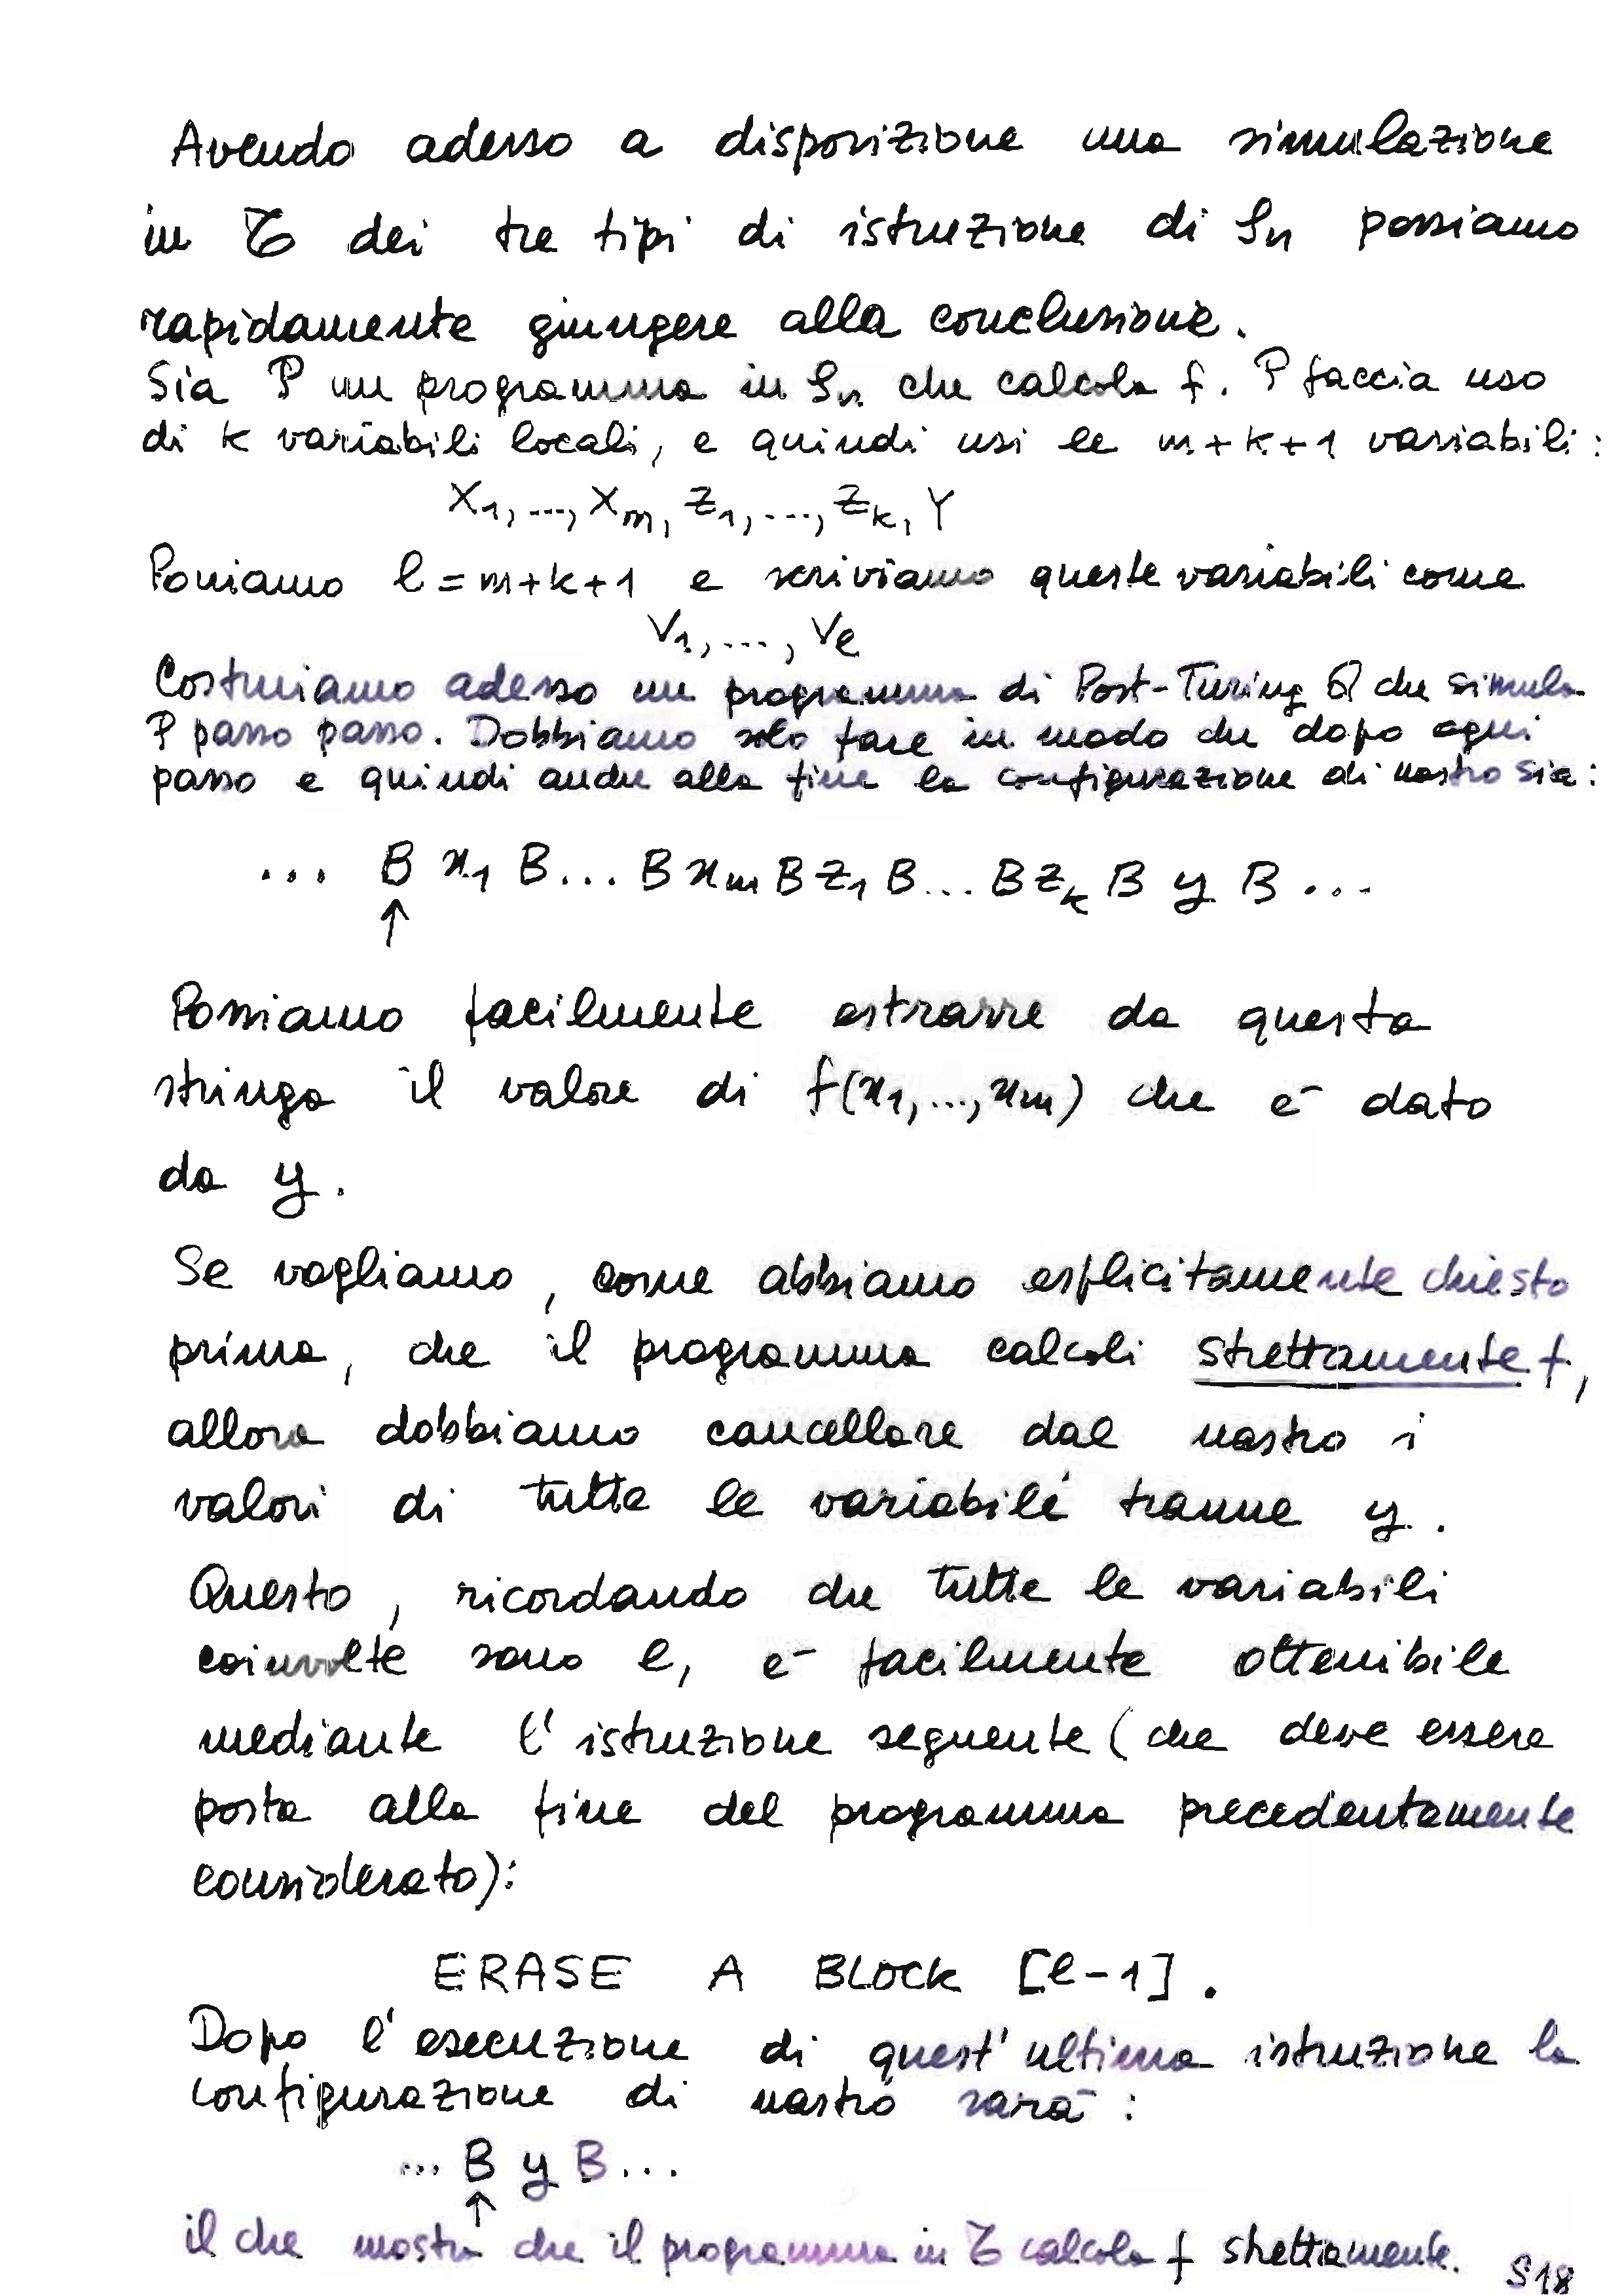 Avendo adesso a disposizione una simulazione
in 𝒯 dei tre tipi di istruzione di 𝒮n possiamo
rapidamente giungere alla conclusione.
Sia 𝒫 un programma in 𝒮n che calcola f. 𝒫 faccia uso
di k variabili locali, e quindi usi le m+k+1 variabili:
X1, ..., Xm, Z1, ..., Zk, Y
Poniamo l = m+k+1 e scriviamo queste variabili come
V1, ..., Vl
Costruiamo adesso un programma di Post-Turing Q che simula
𝒫 passo passo. Dobbiamo solo fare in modo che dopo ogni
passo e quindi anche alla fine la configurazione di nastro sia:
... B x1 B... B xm B z1 B... B zk B y B ...
↑
Possiamo facilmente estrarre da questa
stringa il valore di f(x1, ..., xm) che è dato
da y.
Se vogliamo, come abbiamo esplicitamente chiesto
prima, che il programma calcoli strettamente f,
allora dobbiamo cancellare dal nastro i
valori di tutte le variabili tranne y.
Questo, ricordando che tutte le variabili
coinvolte sono l, è facilmente ottenibile
mediante l'istruzione seguente (che deve essere
posta alla fine del programma precedentemente
considerato):
ERASE A BLOCK [l-1].
Dopo l'esecuzione di quest'ultima istruzione la
configurazione di nastro sarà:
... B y B...
↑
il che mostra che il programma in 𝒯 calcola f strettamente.
S18